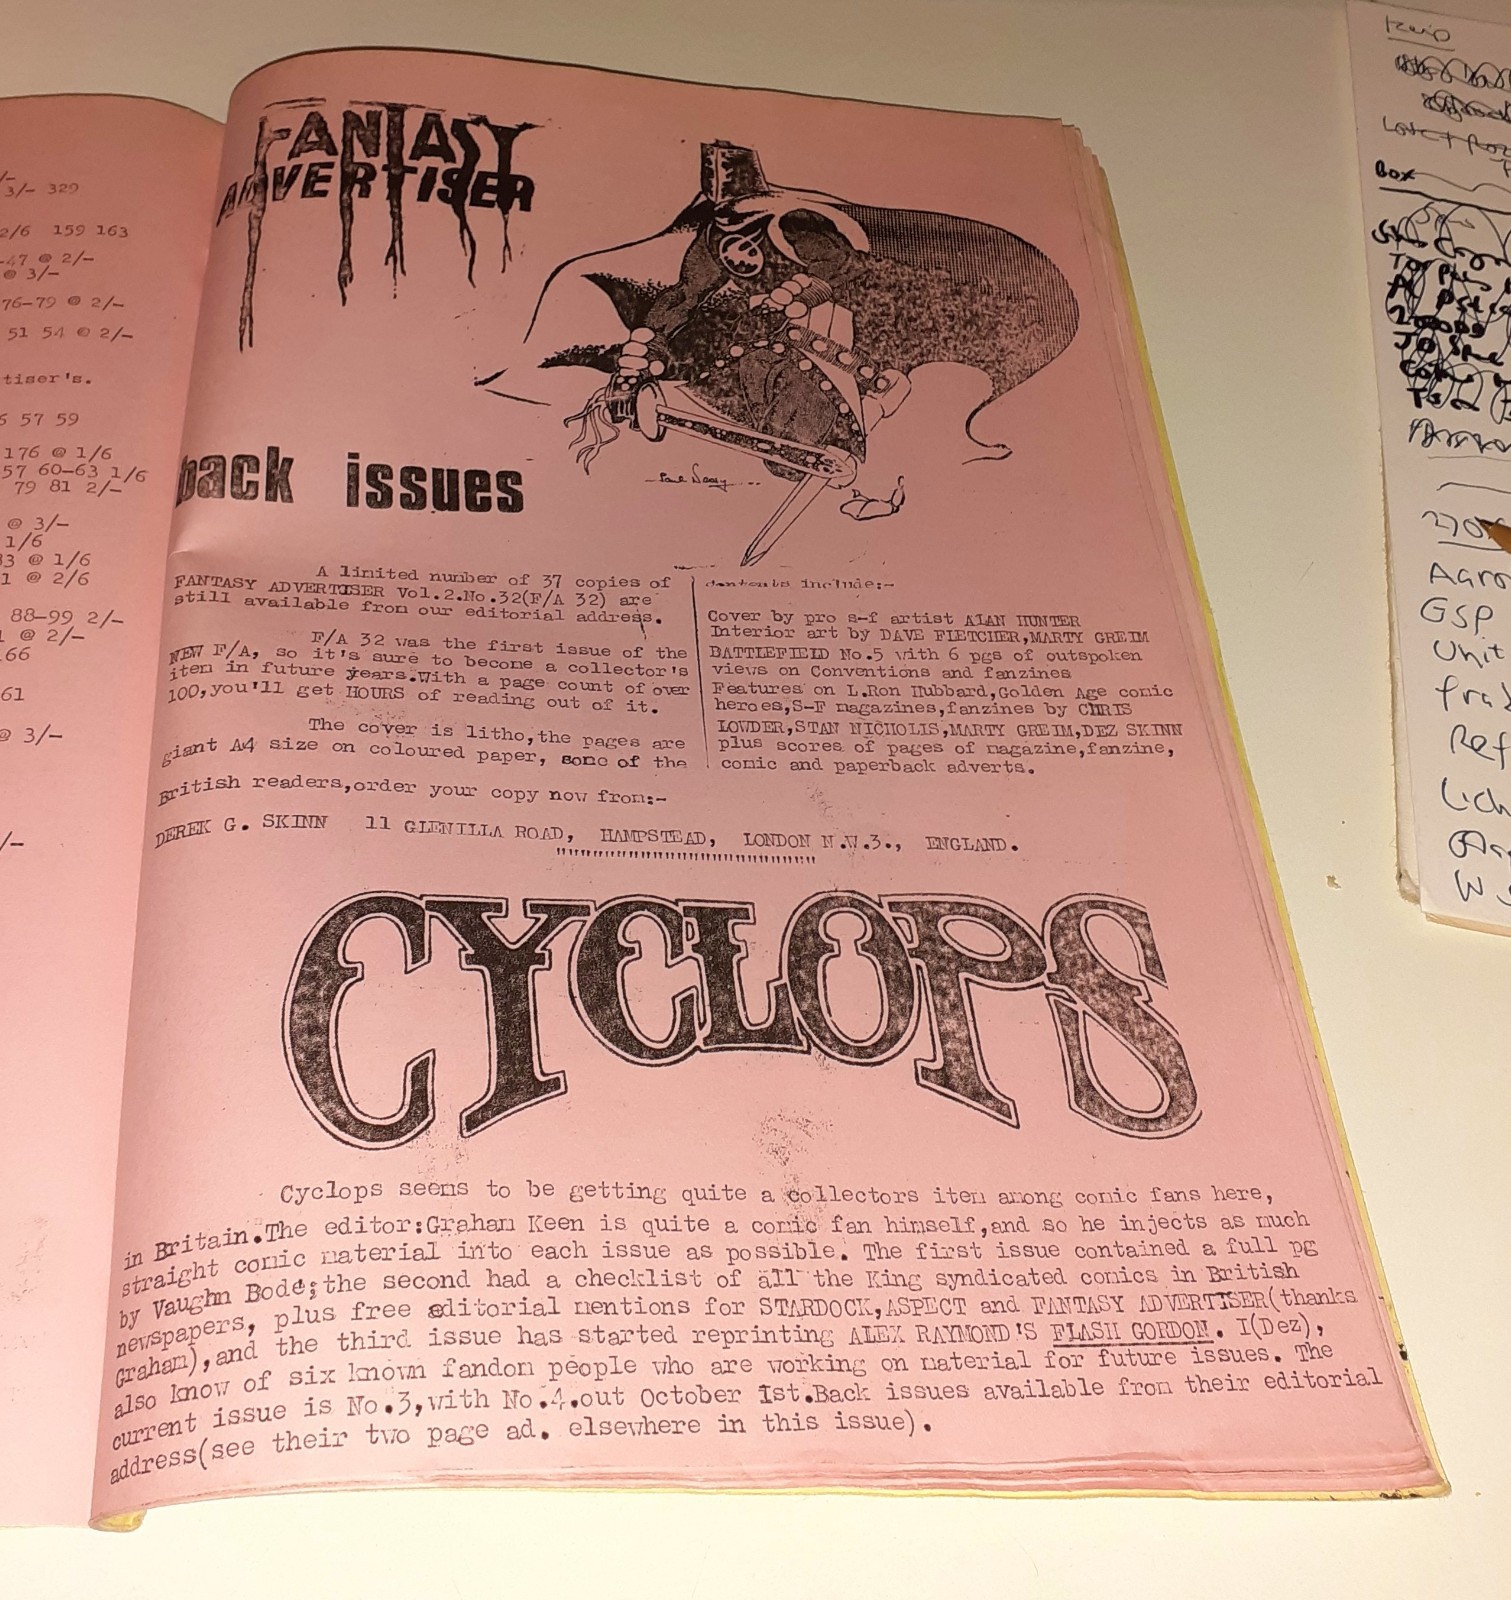 3/- 329
2/6 159 163
-47 @ 2/-
@ 3/-
76-79 @ 2/-
51 54 @ 2/-
tiser's.
6 57 59
176 @ 1/6
57 60-63 1/6
79 81 2/-
@ 3/-
1/6
83 @ 1/6
1 @ 2/6
88-99 2/-
1 @ 2/-
166
61
@ 3/-
/-
FANTASY
ADVERTISER
back issues
A limited number of 37 copies of
FANTASY ADVERTISER Vol.2.No.32(F/A 32) are
still available from our editorial address.
F/A 32 was the first issue of the
NEW F/A, so it's sure to become a collector's
item in future years.With a page count of over
100,you'll get HOURS of reading out of it.
The cover is litho,the pages are
giant A4 size on coloured paper, some of the
contents include:-
Cover by pro s-f artist ALAN HUNTER
Interior art by DAVE FLETCHER,MARTY GREIM
BATTLEFIELD No.5 with 6 pgs of outspoken
views on Conventions and fanzines
Features on L.Ron Hubbard,Golden Age comic
heroes,S-F magazines,fanzines by CHRIS
LOWDER,STAN NICHOLLS,MARTY GREIM,DEZ SKINN
plus scores of pages of magazine,fanzine,
comic and paperback adverts.
British readers,order your copy now from:-
DEREK G. SKINN 11 GLENILLA ROAD, HAMPSTEAD, LONDON N.W.3., ENGLAND.
CYCLOPS
Cyclops seems to be getting quite a collectors item among comic fans here,
in Britain.The editor:Graham Keen is quite a comic fan himself,and so he injects as much
straight comic material into each issue as possible. The first issue contained a full pg
by Vaughn Bode;the second had a checklist of all the King syndicated comics in British
newspapers, plus free editorial mentions for STARDOCK,ASPECT and FANTASY ADVERTISER(thanks
Graham),and the third issue has started reprinting ALEX RAYMOND'S FLASH GORDON. I(Dez),
also know of six known fandom people who are working on material for future issues. The
current issue is No.3,with No.4.out October 1st.Back issues available from their editorial
address(see their two page ad. elsewhere in this issue).
Box
270
GSP
Unit
Ref